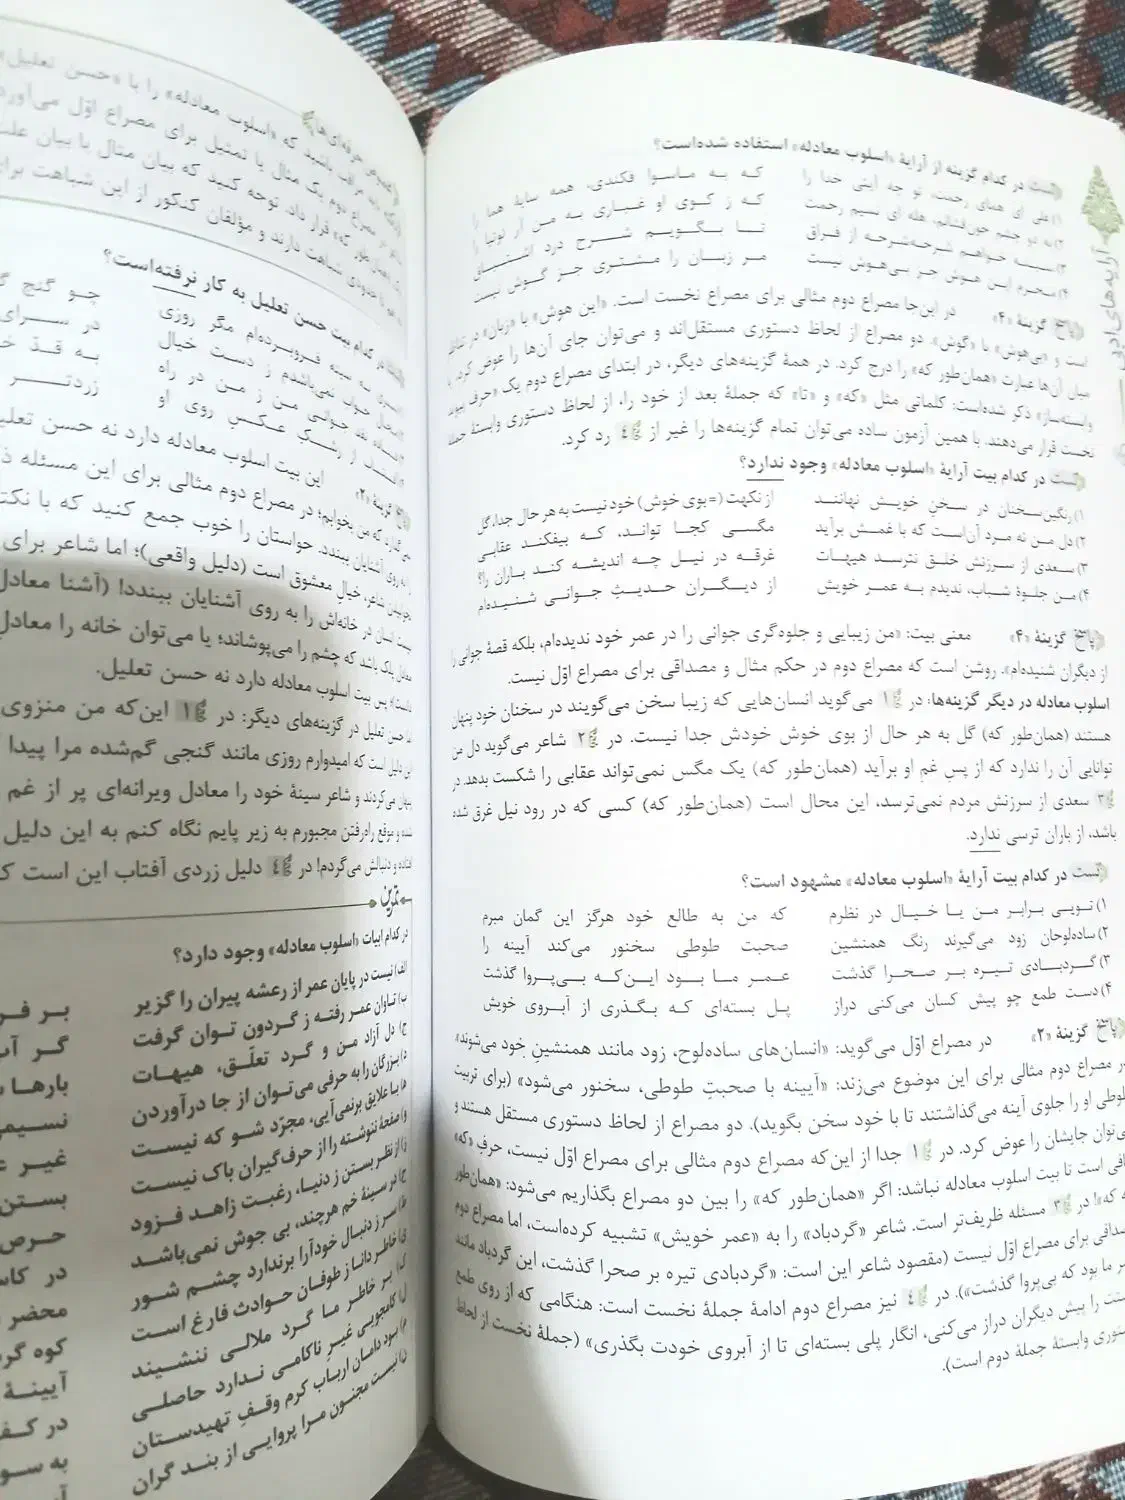 آرایه‌های ادبی
تست در کدام گزینه از آرایهٔ «اسلوب معادله» استفاده شده‌است؟
۱) علی ای همای رحمت، تو چه آیتی خدا را که به ماسوا فکندی، همه سایهٔ هما را
۲) به دو چشم خون‌فشانم، هله ای نسیم رحمت که ز کوی او غباری به من آر توتیا را
۳) سینه خواهم شرحه‌شرحه از فراق تا بگویم شرح درد اشتیاق
۴) محرم این هوش جز بی‌هوش نیست مر زبان را مشتری جز گوش نیست
پاسخ گزینهٔ «۴» در این‌جا مصراع دوم مثالی برای مصراع نخست است. «این هوش» با «زبان» در تناظر
است و «بی‌هوش» با «گوش». دو مصراع از لحاظ دستوری مستقل‌اند و می‌توان جای آن‌ها را عوض کرد. یا
میان آن‌ها عبارت «همان‌طور که» را درج کرد. در همهٔ گزینه‌های دیگر، در ابتدای مصراع دوم یک «حرف پیوند
وابسته‌ساز» ذکر شده‌است: کلماتی مثل «که» و «تا» که جملهٔ بعد از خود را، از لحاظ دستوری وابستهٔ جملهٔ
نخست قرار می‌دهند. با همین آزمون ساده می‌توان تمام گزینه‌ها را غیر از ۴ رد کرد.
تست در کدام بیت آرایهٔ «اسلوب معادله» وجود ندارد؟
۱) رنگین‌سخنان در سخنِ خویش نهانند از نکهت (=بوی خوش) خود نیست به هر حال جدا، گل
۲) دل من نه مرد آن‌است که با غمش برآید مگسی کجا تواند، که بیفکند عقابی
۳) سعدی از سرزنش خلق نترسد هیهات غرقه در نیل چه اندیشه کند باران را؟
۴) من جلوهٔ شباب، ندیدم به عمر خویش از دیگران حدیثِ جوانی شنیده‌ام
پاسخ گزینهٔ «۴» معنی بیت: «من زیبایی و جلوه‌گری جوانی را در عمر خود ندیده‌ام، بلکه قصهٔ جوانی را
از دیگران شنیده‌ام». روشن است که مصراع دوم در حکم مثال و مصداقی برای مصراع اوّل نیست.
اسلوب معادله در دیگر گزینه‌ها: در ۱ می‌گوید انسان‌هایی که زیبا سخن می‌گویند در سخنان خود پنهان
هستند (همان‌طور که) گل به هر حال از بوی خوش خودش جدا نیست. در ۲ شاعر می‌گوید دل من
توانایی آن را ندارد که از پسِ غمِ او برآید (همان‌طور که) یک مگس نمی‌تواند عقابی را شکست بدهد. در
۳ سعدی از سرزنش مردم نمی‌ترسد، این محال است (همان‌طور که) کسی که در رود نیل غرق شده
باشد، از باران ترسی ندارد.
تست در کدام بیت آرایهٔ «اسلوب معادله» مشهود است؟
۱) تویی برابر من یا خیال در نظرم که من به طالع خود هرگز این گمان مبرم
۲) ساده‌لوحان زود می‌گیرند رنگ همنشین صحبت طوطی سخنور می‌کند آیینه را
۳) گردبادی تیره بر صحرا گذشت عمر ما بود این‌که بی‌پروا گذشت
۴) دست طمع چو پیش کسان می‌کنی دراز پل بسته‌ای که بگذری از آبروی خویش
پاسخ گزینهٔ «۲» در مصراع اوّل می‌گوید: «انسان‌های ساده‌لوح، زود مانند همنشینِ خود می‌شوند»
در مصراع دوم مثالی برای این موضوع می‌زند: «آیینه با صحبتِ طوطی، سخنور می‌شود» (برای تربیت
طوطی او را جلوی آینه می‌گذاشتند تا با خود سخن بگوید). دو مصراع از لحاظ دستوری مستقل هستند و
می‌توان جایشان را عوض کرد. در ۱ جدا از این‌که مصراع دوم مثالی برای مصراع اوّل نیست، حرفِ «که»
کافی است تا بیت اسلوب معادله نباشد: اگر «همان‌طور که» را بین دو مصراع بگذاریم می‌شود: «همان‌طور
که که»! در ۳ مسئله ظریف‌تر است. شاعر «گردباد» را به «عمر خویش» تشبیه کرده‌است، اما مصراع دوم
مصداقی برای مصراع اوّل نیست (مقصود شاعر این است: «گردبادی تیره بر صحرا گذشت، این گردباد مانند
عمر ما بود که بی‌پروا گذشت»). در ۴ نیز مصراع دوم ادامهٔ جملهٔ نخست است: هنگامی که از روی طمع
دستت را پیش دیگران دراز می‌کنی، انگار پلی بسته‌ای تا از آبروی خودت بگذری» (جملهٔ نخست از لحاظ
دستوری وابستهٔ جملهٔ دوم است).
مخصوص حرفه‌ای‌ها
مراقب باشید که «اسلوب معادله» را با «حسن تعلیل»
در مصراع دوم یک مثال یا تمثیل برای مصراع اوّل می‌آورد
«همان‌طور که» قرار داد. توجه کنید که بیان مثال با بیان علت
تا حدودی شباهت دارند و مؤلفان کنکور از این شباهت برای
در کدام بیت حسن تعلیل به کار نرفته‌است؟
سر به سینه فروبرده‌ام مگر روزی چو گنج
خواب نمی‌باشدم ز دست خیال در سرای
نقد جوانی من ز من در راه به قدّ
از رشکِ عکسِ روی او زردتر
پاسخ گزینهٔ «۲» این بیت اسلوب معادله دارد نه حسن تعلیل
که من بخوابم؛ در مصراع دوم مثالی برای این مسئله
را به روی آشنایان ببندد. حواستان را خوب جمع کنید که با نکته
شاعر، خیالِ معشوق است (دلیل واقعی)؛ اما شاعر برای
در خانه‌اش را به روی آشنایان ببندد! (آشنا معادل
معادل پلک باشد که چشم را می‌پوشاند؛ یا می‌توان خانه را معادل
پس بیت اسلوب معادله دارد نه حسن تعلیل.
حسن تعلیل در گزینه‌های دیگر: در ۱ این‌که من منزوی
این دلیل است که امیدوارم روزی مانند گنجی گم‌شده مرا پیدا
پنهان می‌کردند و شاعر سینهٔ خود را معادل ویرانه‌ای پر از غم
شده و موقع راه‌رفتن مجبورم به زیر پایم نگاه کنم به این دلیل
افتاده و دنبالش می‌گردم! در ۴ دلیل زردی آفتاب این است که
تمرین
در کدام ابیات «اسلوب معادله» وجود دارد؟
الف) نیست در پایان عمر از رعشه پیران را گزیر
ب) تاوان عمر رفته ز گردون توان گرفت
ج) دل آزاد من و گرد تعلّق، هیهات
د) بزرگان را به حرفی می‌توان از جا درآوردن
ه) با علایق برنمی‌آیی، مجرّد شو که نیست
و) صفحهٔ ننوشته را از حرف‌گیران باک نیست
ز) از نظر بستن ز دنیا، رغبت زاهد فزود
ح) در سینهٔ خم هرچند، بی جوش نمی‌باشد
ط) سر ز دنبال خودآرا برندارد چشم شور
ی) خاطر دانا ز طوفان حوادث فارغ است
ک) بر خاطر ما گرد ملالی ننشیند
ل) کامجویی غیرِ ناکامی ندارد حاصلی
م) بود دامان ارباب کرم وقفِ تهیدستان
ن) نیست مجنون مرا پروایی از بند گران
بر
گر
بارها
نسیمی
غیر
بستن
حرص
در
محضر
کوه
آیینهٔ
در
به